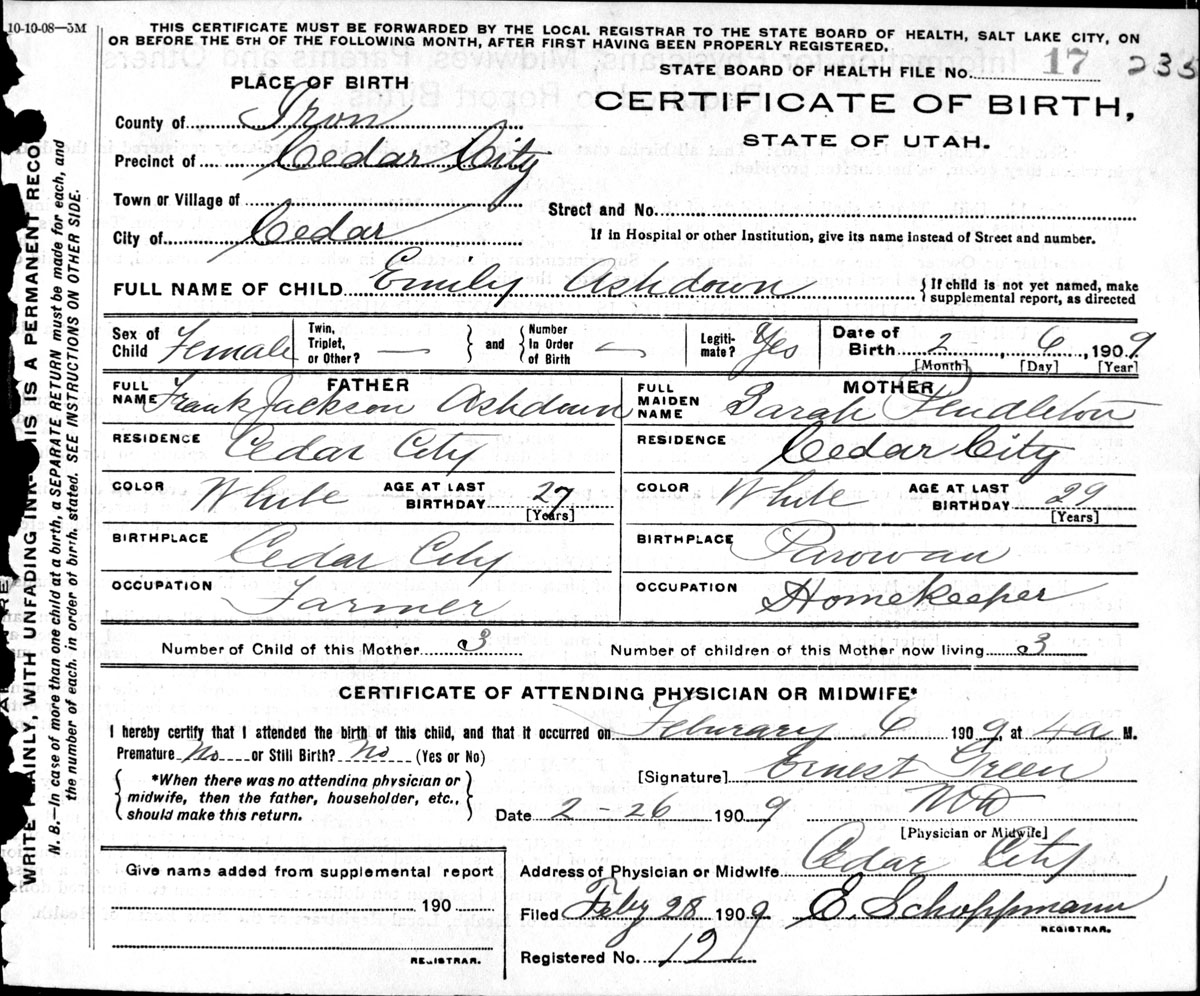 10-10-08—5M
THIS CERTIFICATE MUST BE FORWARDED BY THE LOCAL REGISTRAR TO THE STATE BOARD OF HEALTH, SALT LAKE CITY, ON
OR BEFORE THE 5TH OF THE FOLLOWING MONTH, AFTER FIRST HAVING BEEN PROPERLY REGISTERED.
STATE BOARD OF HEALTH FILE No. 17 235
PLACE OF BIRTH
CERTIFICATE OF BIRTH,
STATE OF UTAH.
County of Iron
Precinct of Cedar City
Town or Village of
Street and No.
City of Cedar
If in Hospital or other Institution, give its name instead of Street and number.
FULL NAME OF CHILD Emily Ashdown
{ If child is not yet named, make
supplemental report, as directed
Sex of Child Female
Twin, Triplet, or Other? —
} and {
Number In Order of Birth —
Legiti-mate? Yes
Date of Birth 2, 6, 1909
[Month] [Day] [Year]
FATHER
FULL NAME Frank Jackson Ashdown
MOTHER
FULL MAIDEN NAME Sarah Pendleton
RESIDENCE Cedar City
RESIDENCE Cedar City
COLOR White AGE AT LAST BIRTHDAY 27
[Years]
COLOR White AGE AT LAST BIRTHDAY 29
[Years]
BIRTHPLACE Cedar City
BIRTHPLACE Parowan
OCCUPATION Farmer
OCCUPATION Homekeeper
Number of Child of this Mother 3
Number of children of this Mother now living 3
CERTIFICATE OF ATTENDING PHYSICIAN OR MIDWIFE*
I hereby certify that I attended the birth of this child, and that it occurred on Feburary 6 1909, at 4a M.
Premature No or Still Birth? No (Yes or No)
{ *When there was no attending physician or
midwife, then the father, householder, etc.,
should make this return. }
[Signature] Ernest Green
Date 2-26 1909 MD
[Physician or Midwife]
Give name added from supplemental report
190
REGISTRAR.
Address of Physician or Midwife Cedar City
Filed Feby 28 1909 E. Schoppmann
REGISTRAR.
Registered No. 12
WRITE PLAINLY, WITH UNFADING INK—THIS IS A PERMANENT RECO
N. B.—In case of more than one child at a birth, a SEPARATE RETURN must be made for each, and
the number of each, in order of birth, stated. SEE INSTRUCTIONS ON OTHER SIDE.